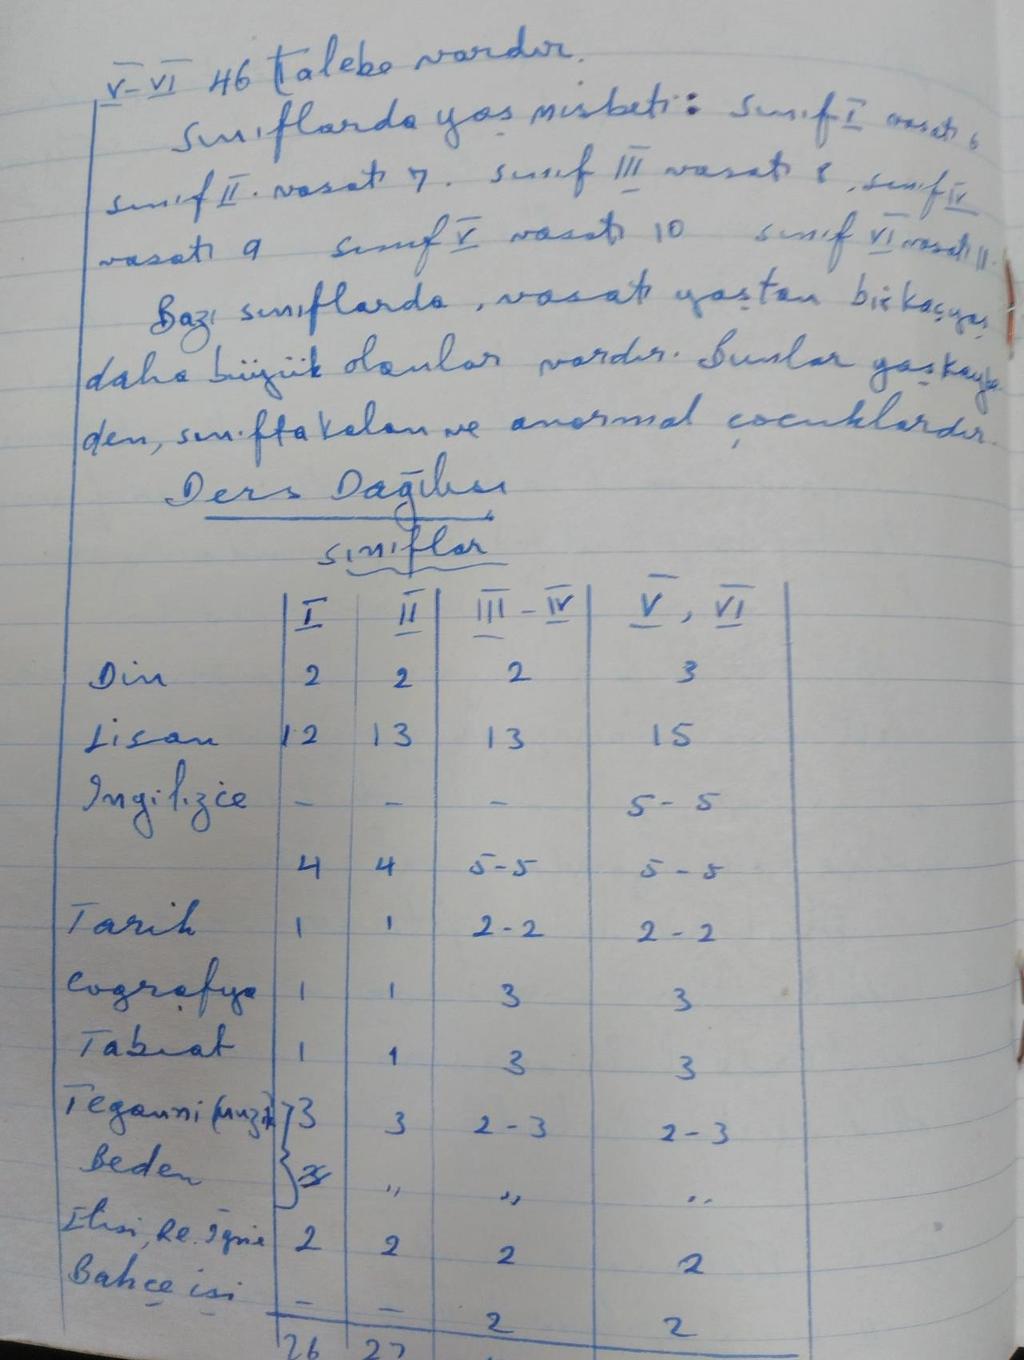 V-VI 46 Talebe vardır.
Sınıflarda yaş nisbeti: Sınıf I vasati 6
sınıf II. vasati 7. sınıf III vasati 8, sınıf IV
vasati 9 sınıf V vasati 10 sınıf VI vasati 11.
Bazı sınıflarda, vasati yaştan birkaç yaş
daha büyük olanlar vardır. Bunlar yaş kaybe
den, sınıfta kalan ve anormal çocuklardır.
Ders Dağılışı
sınıflar
I II III - IV V, VI
Din 2 2 2 3
Lisan 12 13 13 15
İngilizce - - - 5-5
4 4 5-5 5-5
Tarih 1 1 2-2 2-2
Coğrafya 1 1 3 3
Tabiat 1 1 3 3
Teganni (müzik) 3 3 2-3 2-3
Beden " " "
Elişi, Re. İğne 2 2 2 2
Bahçe işi - - 2 2
26 27